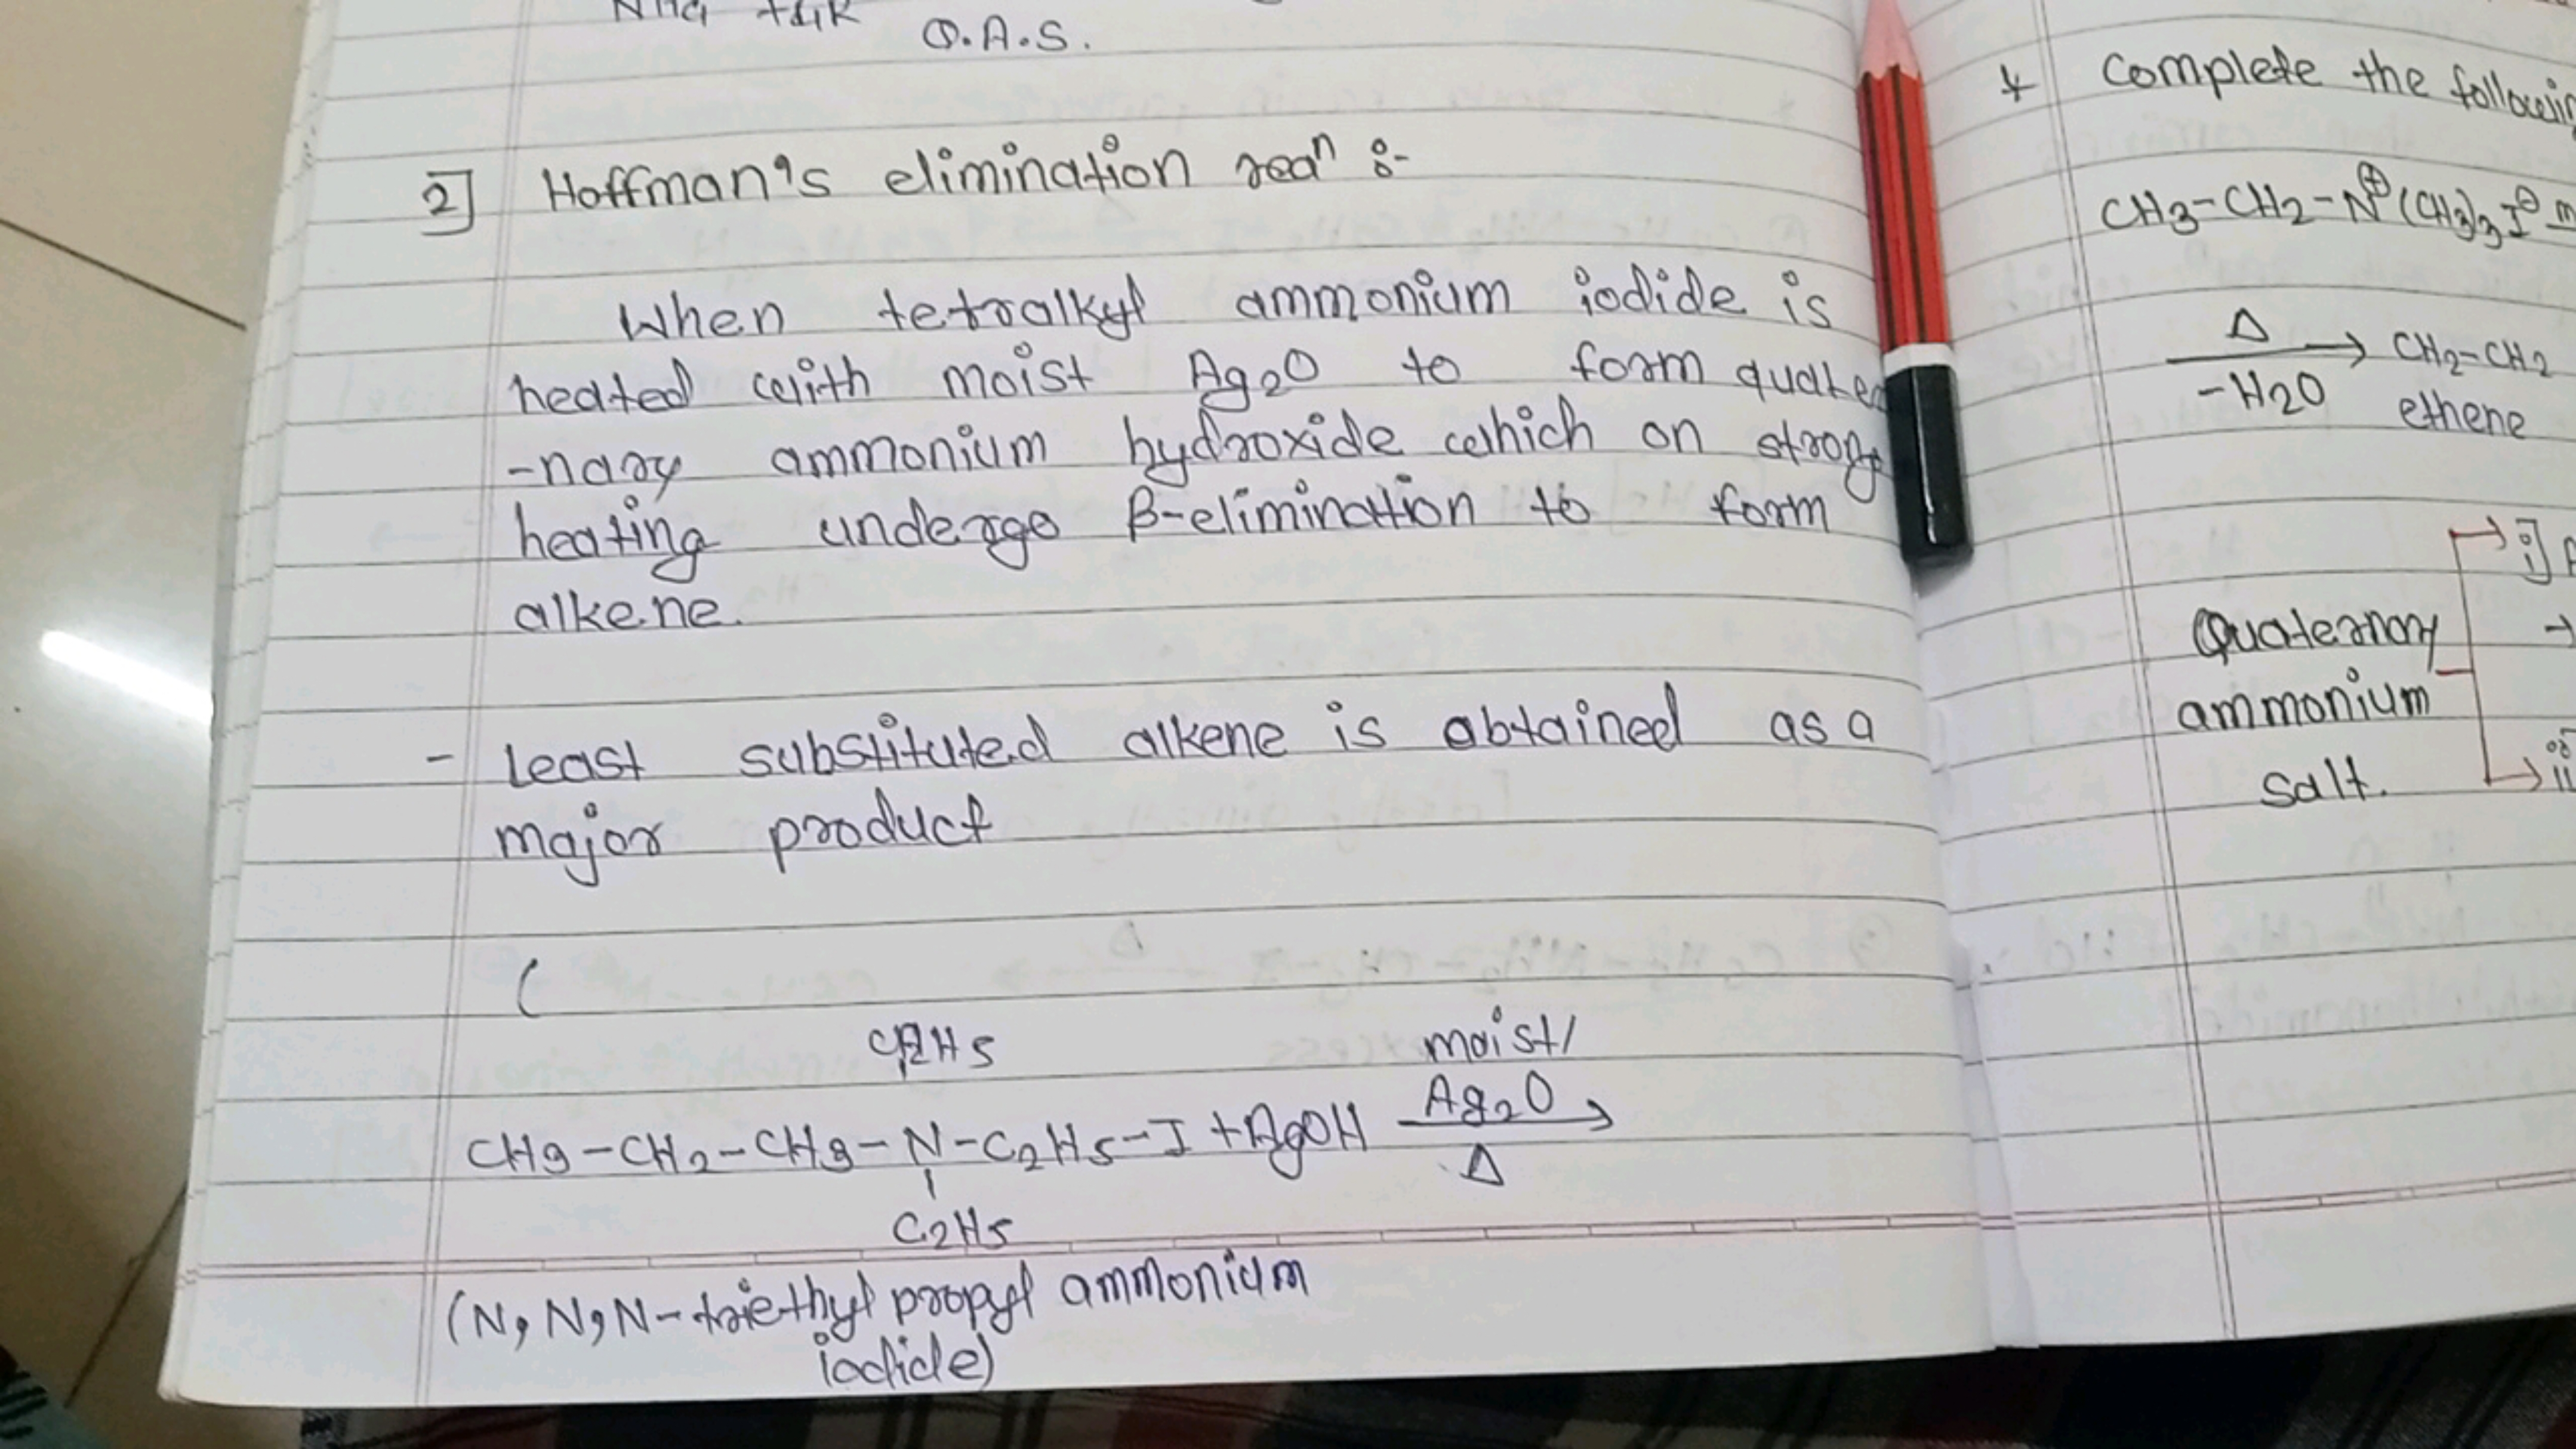 Q.A.S.
2] Hoffman's elimination reaⁿ :-
When tetralkyl ammonium iodide is
heated with moist Ag2O to form quater
-nary ammonium hydroxide which on strong
heating undergo β-elimination to form
alkene.
- Least substituted alkene is obtained as a
major product
(
C2H5
moist/
CH3-CH2-CH3-N-C2H5-I +AgOH Ag2O →
Δ
C2H5
(N,N,N-triethyl propyl ammonium
iodide)
* Complete the
CH3-CH2-N⊕(CH3)3I⊖
Δ →
-H2O
CH2-CH2
ethene
i]
Quaternary
ammonium
salt.
ii